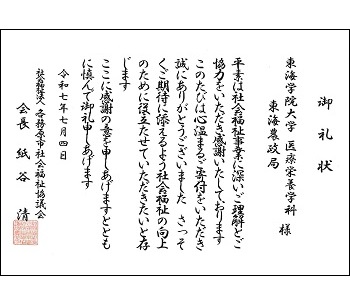 御礼状
東海学院大学 医療栄養学科
東海農政局 様
平素は社会福祉事業に深いご理解とご
協力をいただき感謝いたしております
このたびは心温まるご寄付をいただき
誠にありがとうございました さっそ
くご期待に添えるよう社会福祉の向上
のために役立たせていただきたいと存
じます
ここに感謝の意を申しあげますととも
に慎んで御礼申しあげます
令和七年七月四日
社会福祉法人 各務原市社会福祉協議会
会長 紙谷 清